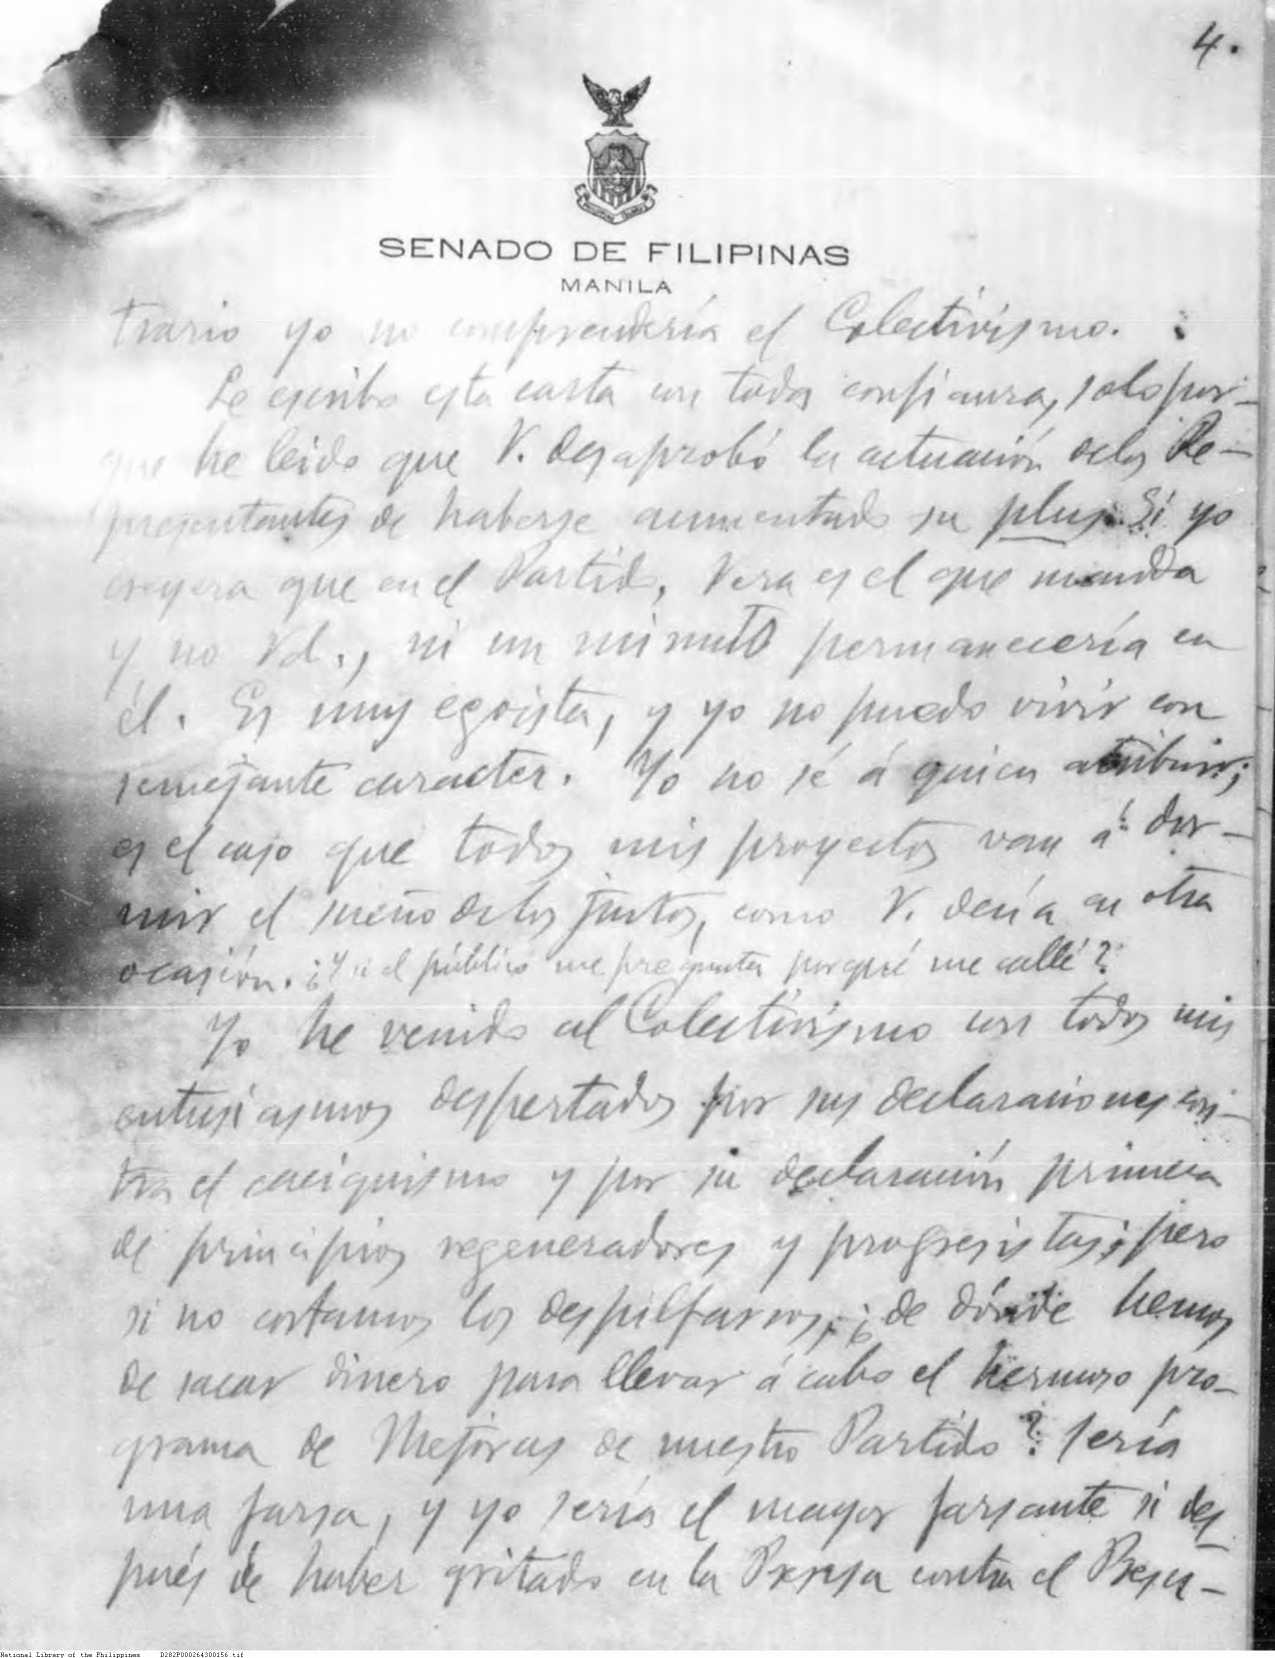 4.
SENADO DE FILIPINAS
MANILA
trario yo no comprendería el Colectivismo.
Le escribo esta carta con toda confianza, solo por-
que he leido que V. desaprobó la actuación de los Re-
presentantes de haberse aumentado su plus. Si yo
creyera que en el Partido, Vera es el que manda
y no Vd., ni un minuto permanecería en
él. Es muy egoista, y yo no puedo vivir con
semejante caracter. Yo no sé á quien atribuir;
es el caso que todos mis proyectos van á dor-
mir el sueño de los justos, como V. decía en otra
ocasión. ¿Y si el público me pregunta porqué me callé?
Yo he venido al Colectivismo con todos mis
entusiasmos despertados por sus declaraciones con-
tra el caciquismo y por su declaración primera
de principios regeneradores y progresistas; pero
si no cortamos los despilfarros, ¿de dónde hemos
de sacar dinero para llevar á cabo el hermoso pro-
grama de Mejoras de nuestro Partido? Sería
una farsa, y yo sería el mayor farsante si des-
pués de haber gritado en la Prensa contra el Presu-
National Library of the Philippines D282P000264300156.tif